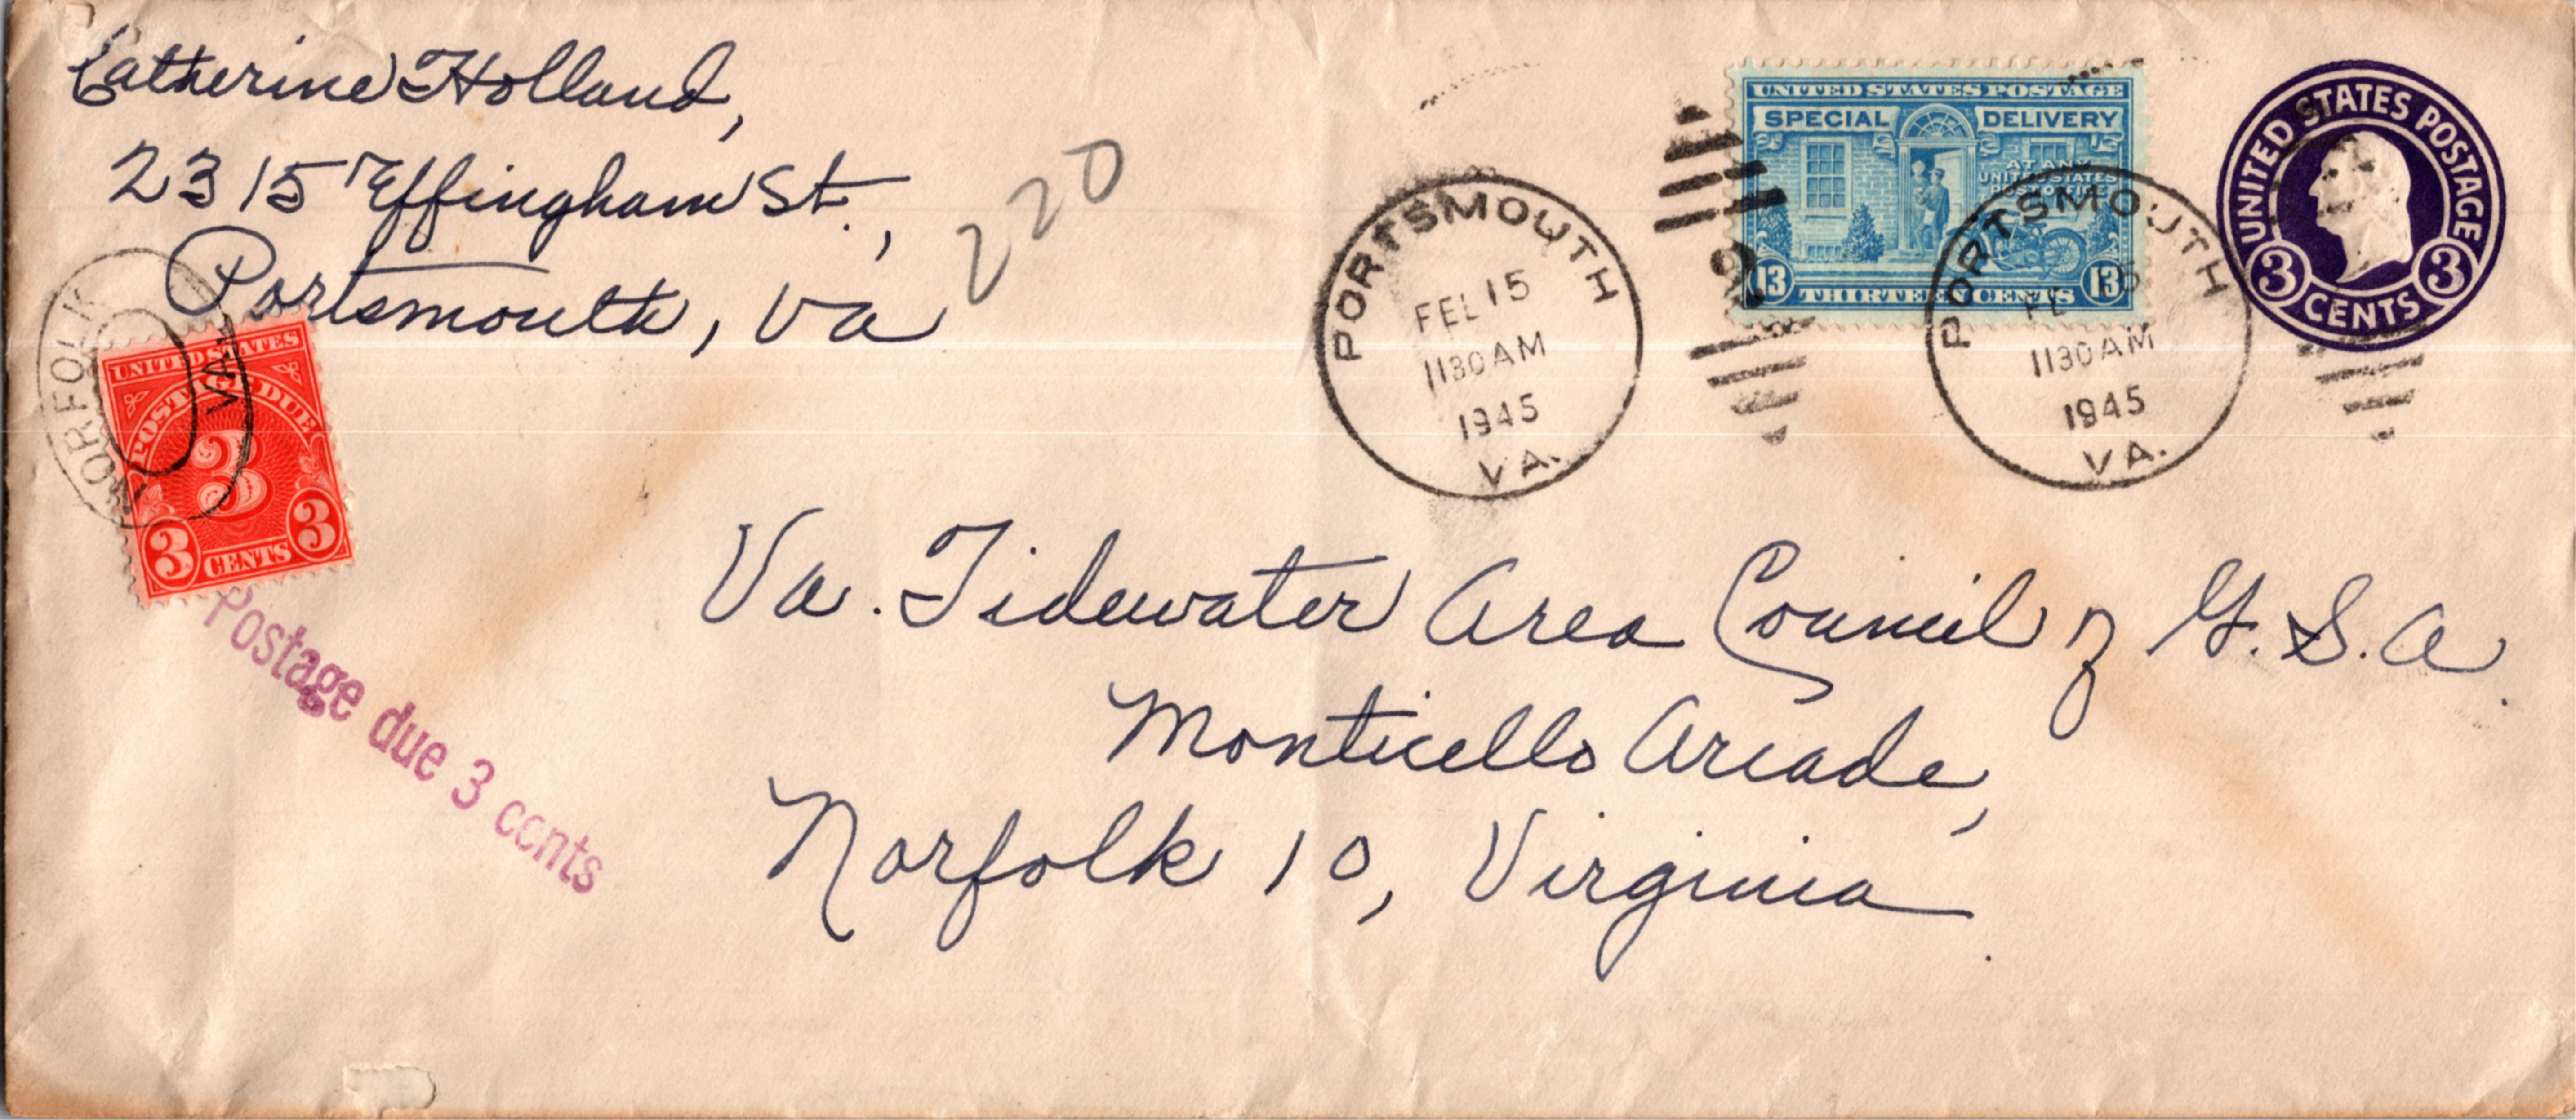 Catherine Holland,
2315 Effingham St.,
Portsmouth, Va
220
NORFOLK
VA.
UNITED STATES
POSTAGE DUE
3
3 CENTS 3
Postage due 3 cents
PORTSMOUTH
FEB 15
1130 AM
1945
VA.
UNITED STATES POSTAGE
SPECIAL DELIVERY
AT ANY
UNITED STATES
POST OFFICE
13 THIRTEEN CENTS 13
PORTSMOUTH
1130 AM
1945
VA.
UNITED STATES POSTAGE
3 CENTS 3
Va. Tidewater Area Council of G.S.A.
Monticello Arcade,
Norfolk 10, Virginia.